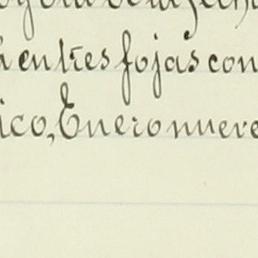 en tres fojas con
ico, Enero nueve